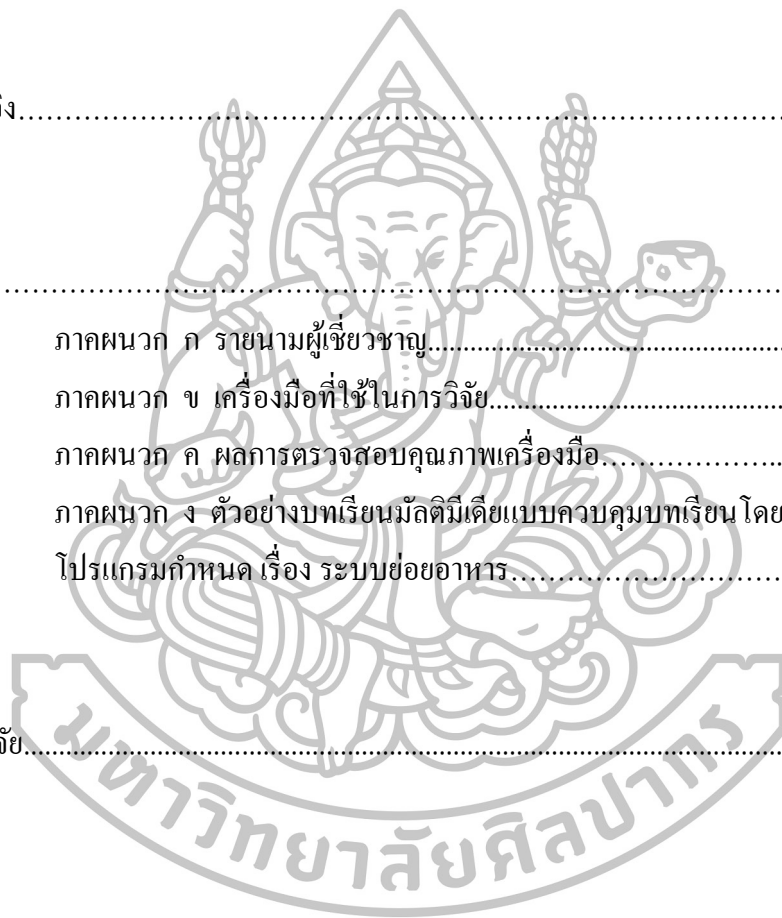 ภาคผนวก ก รายนามผู้เชี่ยวชาญ................................................
ภาคผนวก ข เครื่องมือที่ใช้ในการวิจัย.......................................
ภาคผนวก ค ผลการตรวจสอบคุณภาพเครื่องมือ......................
ภาคผนวก ง ตัวอย่างบทเรียนมัลติมีเดียแบบควบคุมบทเรียนโดย
โปรแกรมกำหนด เรื่อง ระบบย่อยอาหาร.................................
มหาวิทยาลัยศิลปากร